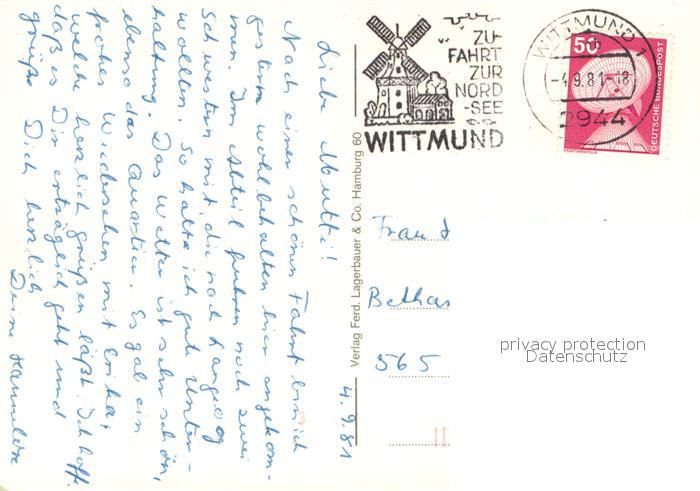 4.9.81
Liebe Mutti!
Nach einer schönen Fahrt bin ich
gestern wohlbehalten hier angekom-
men. Im Abteil fuhren noch zwei
Schwestern mit, die nach Langeoog
wollten. So hatte ich gute Unter-
haltung. Das Wetter ist sehr schön,
ebenso das Quartier. Es gab ein
frohes Wiedersehen mit Erika,
welche herzlich grüßen läßt. Ich hoffe,
daß es Dir erträglich geht und
grüße Dich herzlich
Deine Hannelore
Verlag Ferd. Lagerbauer & Co. Hamburg 60
ZU-
FAHRT
ZUR
NORD
-SEE
WITTMUND
WITTMUND 1
-4.9.81-18
2944
50
DEUTSCHE BUNDESPOST
Frau
Bethas
565
privacy protection
Datenschutz